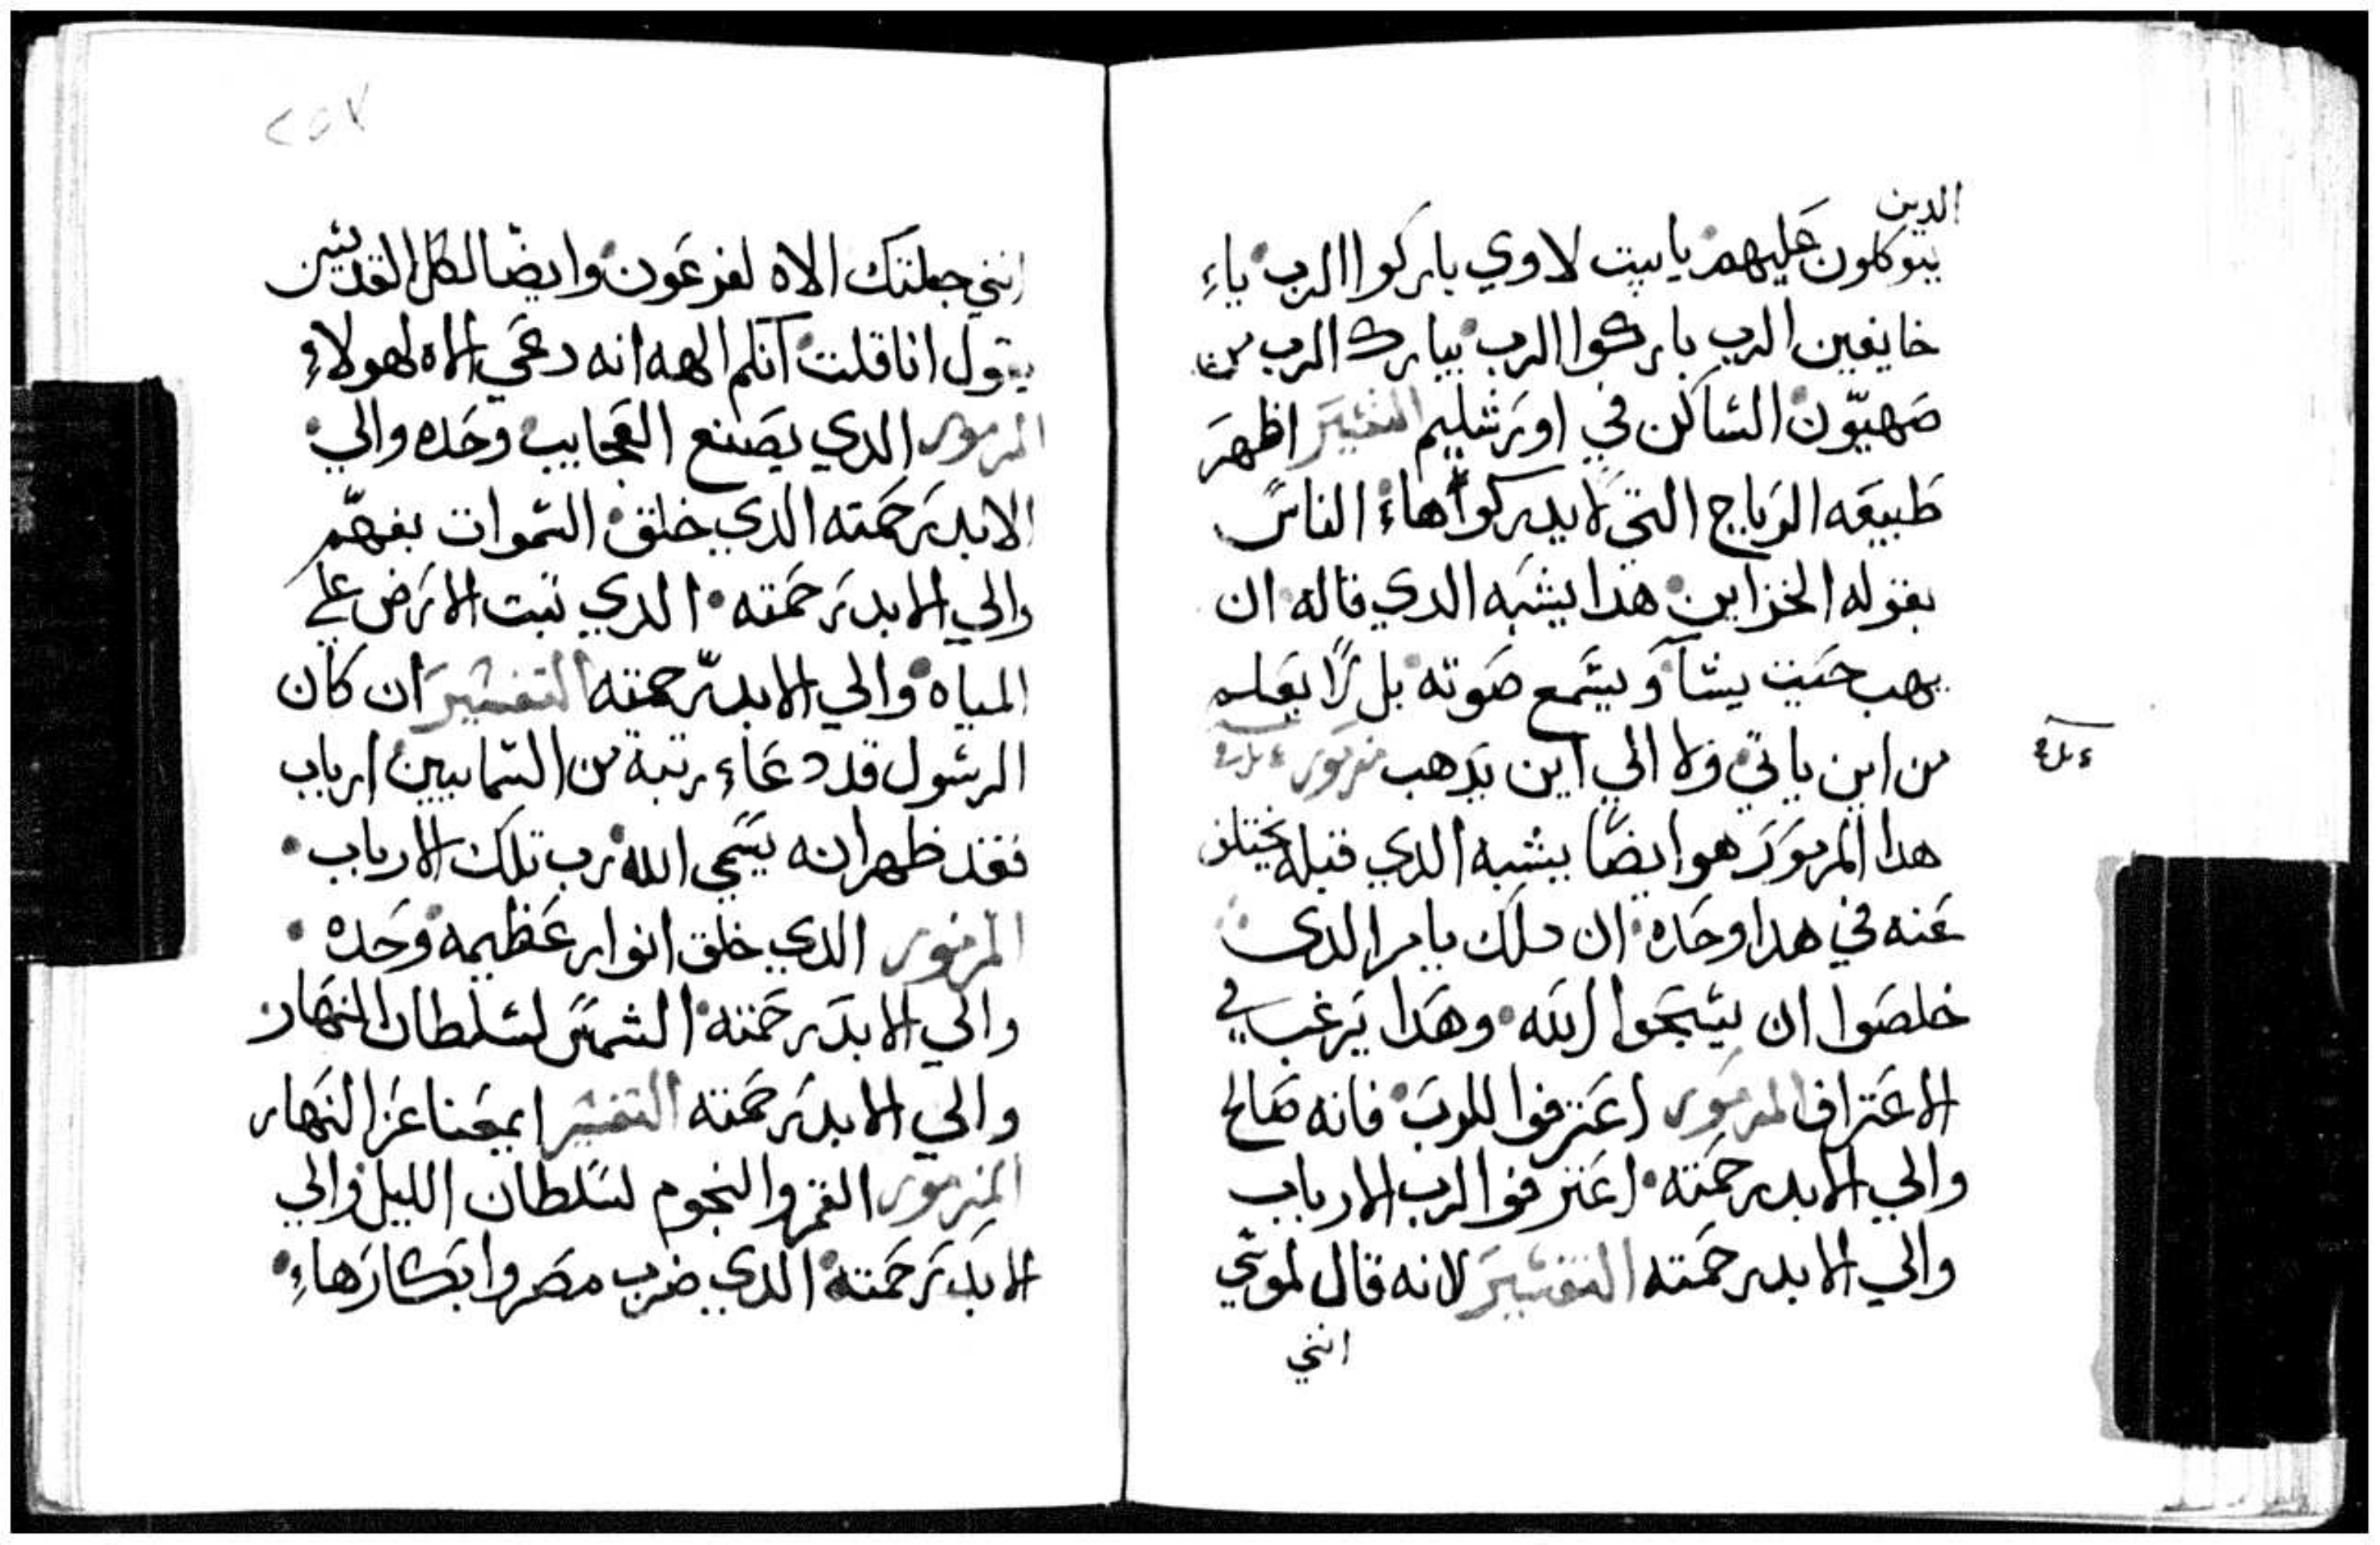 الدين
يتوكلون عليهم يا بيت لاوي باركوا الرب ياء
خايفين الرب باركوا الرب يبارك الرب من
صهيون الساكن في اورشليم التفسير اظهر
طبيعه الرياح التي لا يدركواها الناس
بقوله الخزاين هدا يشبه الدي قاله ان
يهب حيت يشا ويسمع صوته بل لا يعلم
من اين ياتي ولا الي اين يدهب مزمور
هدا المزمور هو ايضا يشبه الدي قبله يختلف
عنه في هدا وحده ان دلك يامر الدى
خلصوا ان يسبحوا الله وهدا يرغب في
الاعتراف المزمور اعترفوا للرب فانه صالح
والي الابد رحمته اعترفوا لرب الارباب
والي الابد رحمته التفسير لانه قال لموسي
انني
انني جعلتك الاه لفرعون وايضا لكل القديسين
يقول انا قلت انكم الهه انه دعي الاه لهولاء
المزمور الدي يصنع العجايب وحده والي
الابد رحمته الدي خلق السموات بفهم
والي الابد رحمته الدي تبت الارض علي
المياه والي الابد رحمته التفسير ان كان
الرسول قد دعاء رتبة من السماييين ارباب
فقد ظهر انه يسمي الله رب تلك الارباب
المزمور الدي خلق انوار عظيمه وحده
والي الابد رحمته الشمس لسلطان النهار
والي الابد رحمته التفسير ايمعنا عز النهار
المزمور القمر والنجوم لسلطان الليل والي
الابد رحمته الدي ضرب مصر وابكارهاء